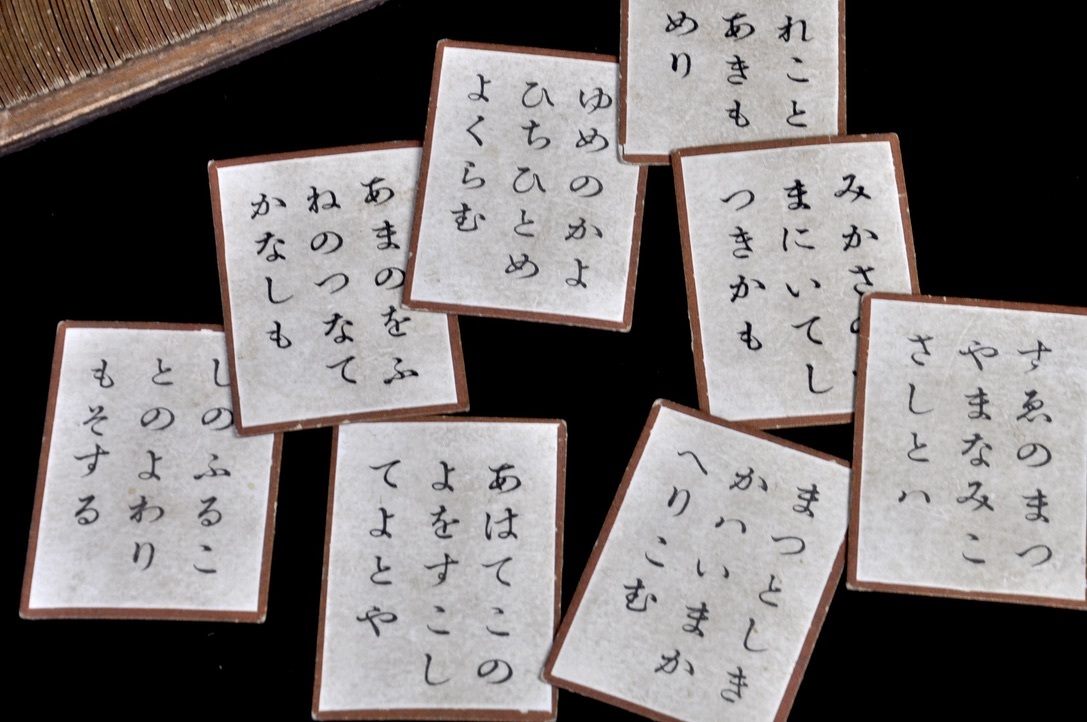 れこと
あきも
めり
ゆめのかよ
ひちひとめ
よくらむ
みかさの
まにいてし
つきかも
あまのをふ
ねのつなて
かなしも
すゑのまつ
やまなみこ
さしとハ
しのふるこ
とのよわり
もそする
あはてこの
よをすこし
てよとや
まつとしき
かハいまか
へりこむ